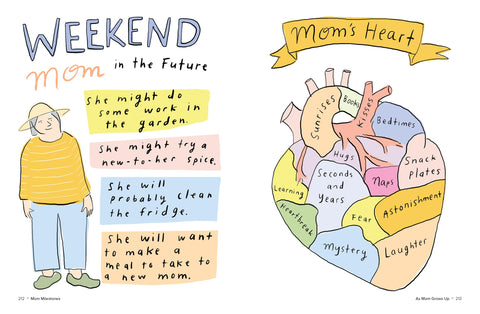 WEEKEND
Mom in the Future
She might do
some work in
the garden.
She might try a
new-to-her spice.
She will
probably clean
the fridge.
She will want
to make a
meal to take to
a new mom.
212 • Mom Milestones
Mom's Heart
Sunrises
Books
Kisses
Bedtimes
Hugs
Snack
Plates
Learning
Seconds
and
Years
Naps
Astonishment
Heartbreak
Fear
Mystery
Laughter
As Mom Grows Up • 213